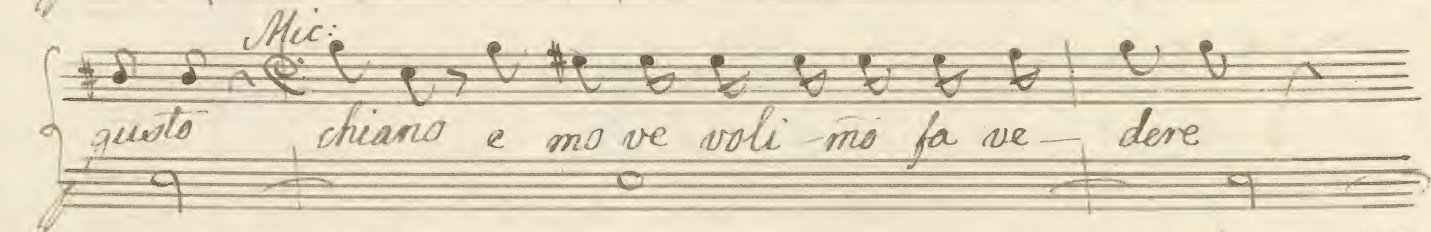 Mic:
gusto chiano e mo ve voli-mo fa ve- dere